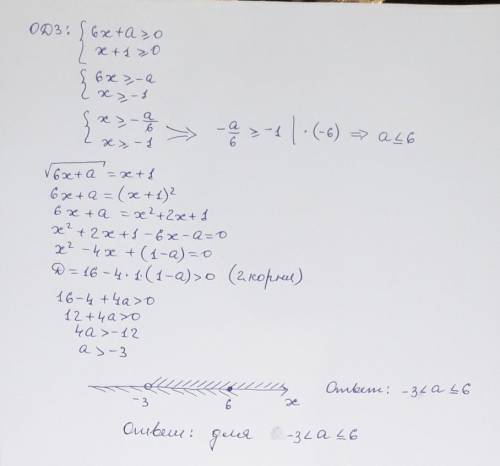 ОДЗ: { 6x+a ≥ 0
x+1 ≥ 0
{ 6x ≥ -a
x ≥ -1
{ x ≥ -a/6
x ≥ -1 ⇒ -a/6 ≥ -1 | ·(-6) ⇒ a ≤ 6
√(6x+a) = x+1
6x+a = (x+1)²
6x+a = x²+2x+1
x²+2x+1-6x-a=0
x²-4x+(1-a)=0
D=16-4·1·(1-a)>0 (2 корни)
16-4+4a>0
12+4a>0
4a>-12
a>-3
-3 6 x Ответ: -3<a≤6
Ответ: для -3<a≤6